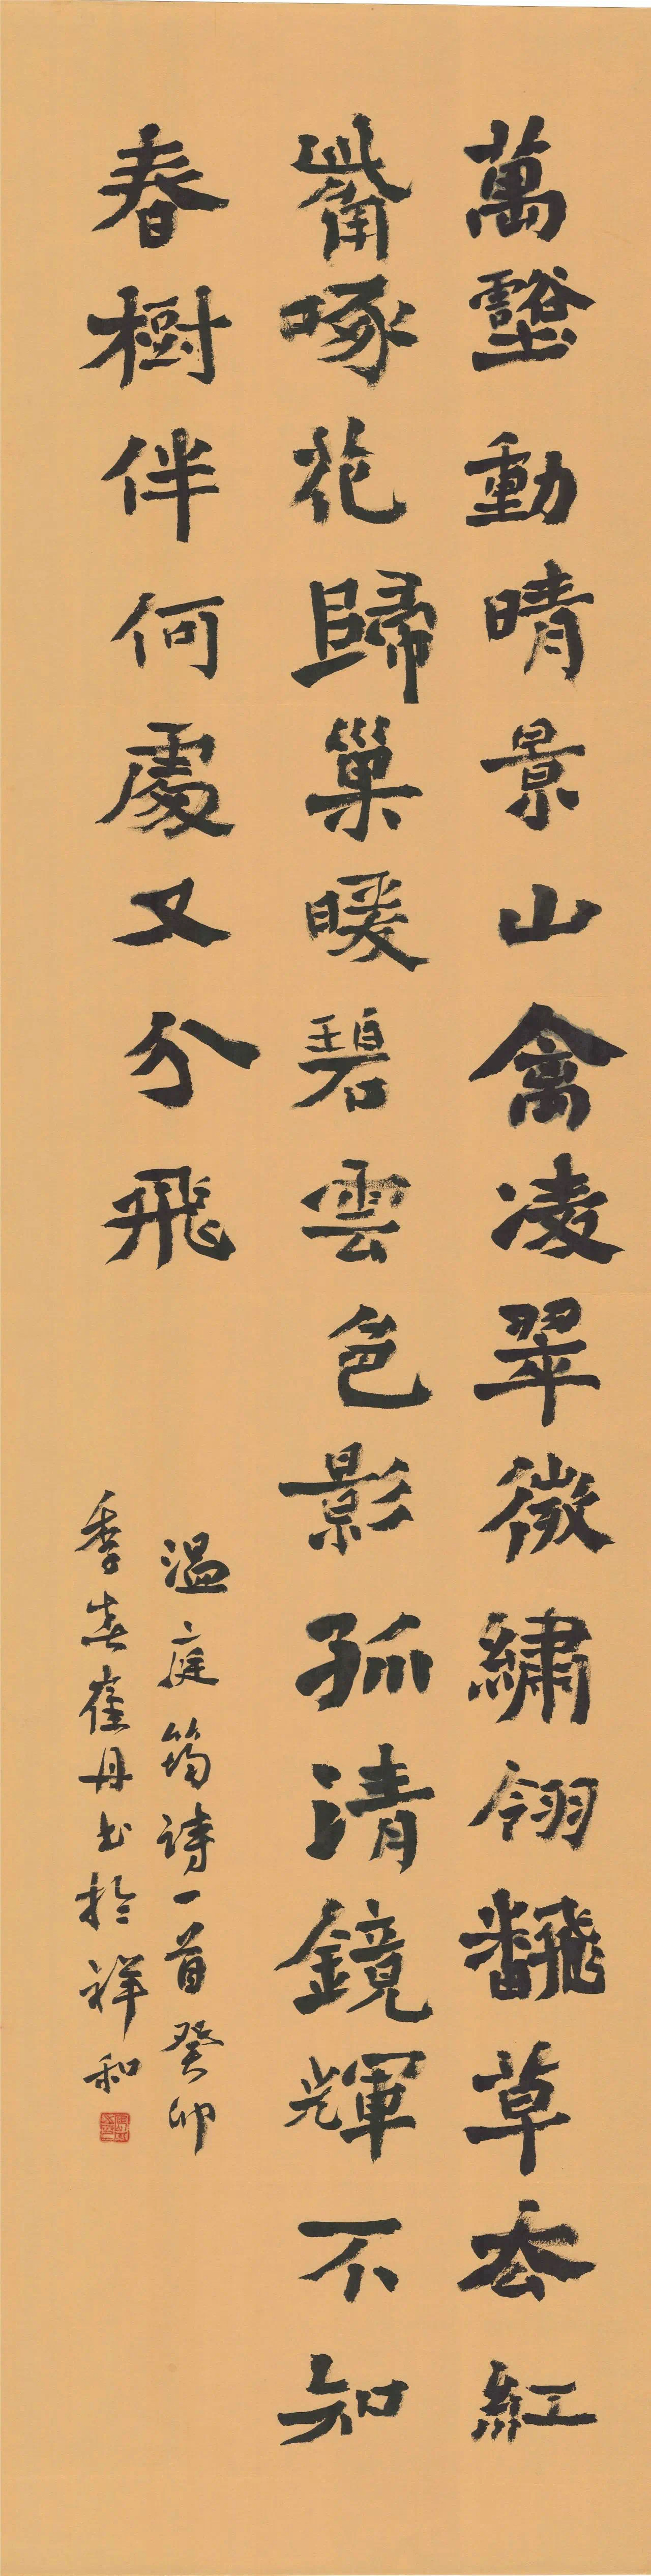 萬壑動晴景山禽凌翠微繡翎翻草去紅
觜啄花歸巢暖碧雲色影孤清鏡輝不知
春樹伴何處又分飛
溫庭筠詩一首癸卯
季春崔丹書於祥和